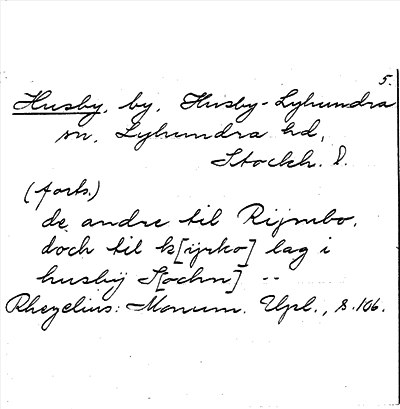 5.
Husby, by, Husby-Lyhundra
sn, Lyhundra hd,
Stockh. l.
(forts.)
de andre til Rijmbo,
doch til k[iyrko] lag i
husbij S[ochn] --
Rhezelius: Monum. Upl., s. 106.